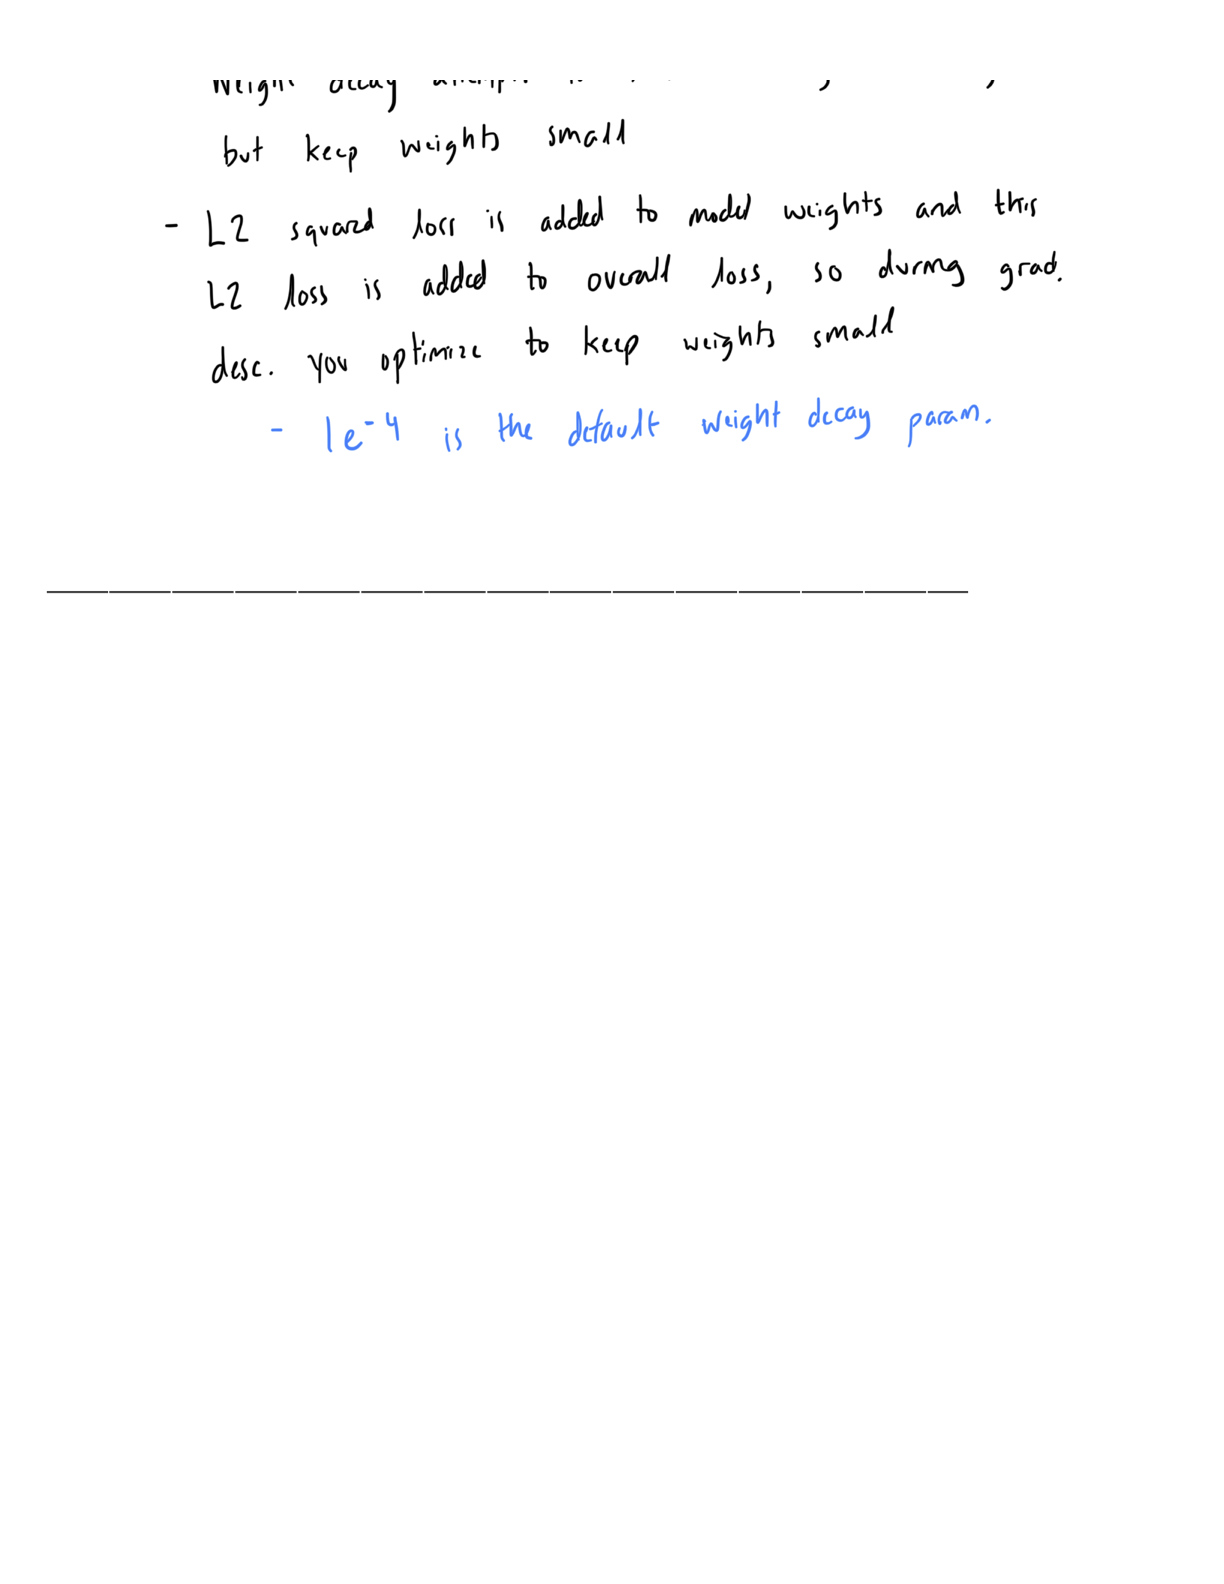 weight decay
but keep weights small
- L2 squared loss is added to model weights and this
L2 loss is added to overall loss, so during grad.
desc. you optimize to keep weights small
- 1e-4 is the default weight decay param.